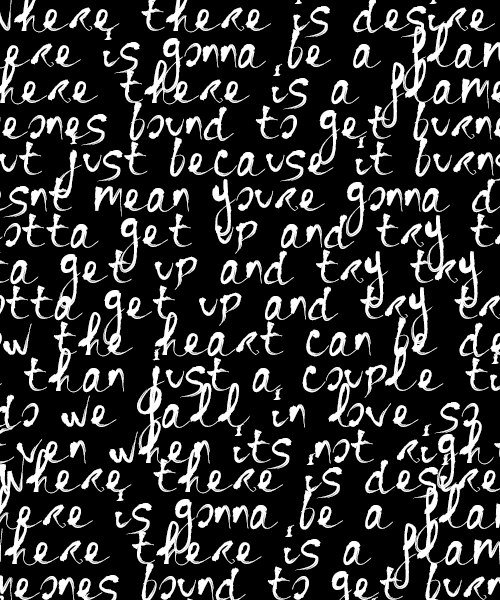 where there is desire
ere is gonna be a flam
here there is a flame
eones bound to get burne
ut just because it burns
esnt mean youre gonna d
otta get up and try tr
ta get up and try try
otta get up and try tr
ow the heart can be de
than just a couple ti
do we fall in love so
even when its not right
where there is desire
here is gonna be a flam
here there is a flam
meones bound to get burn